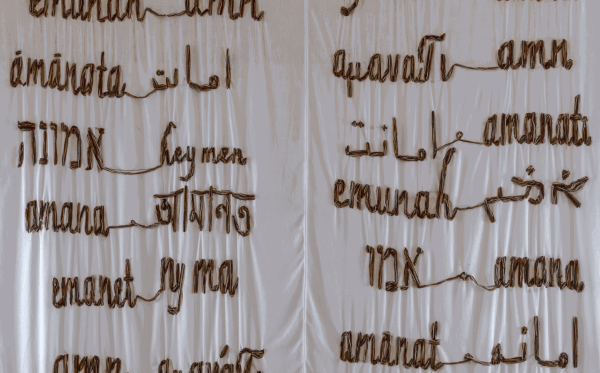 emunah amn
ámánata امانت
אמונה heymen
amana আমানত
emanet ny ma
amn
amn
امانت amanati
emunah
אמן amana
amanat